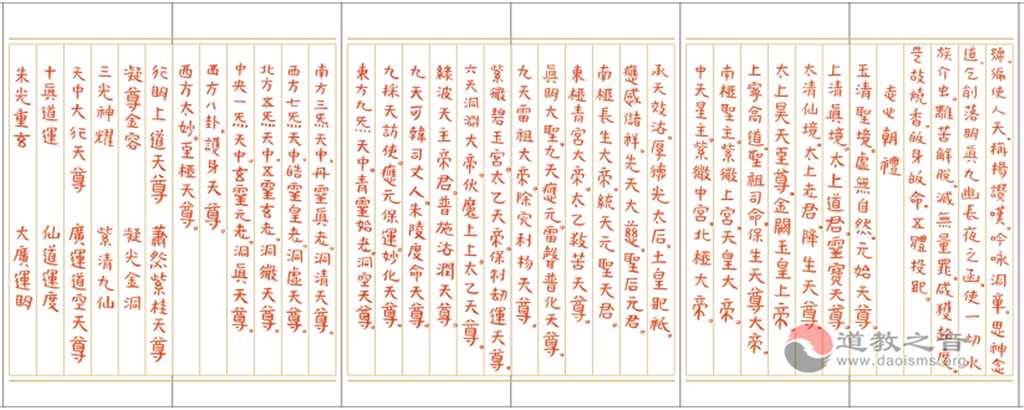 獅徧使人天。稱揚讚嘆。吟咏洞章。思神念
道。乞削落明眞。九幽長夜之函。使一切水
族介虫。離苦解脫。滅無量罪。咸獲超度。
是故燒香。皈身皈命。五體投地。
志心朝禮
玉清聖境。虛無自然。元始天尊。
上清眞境。太上道君。靈寶天尊。
太清仙境。太上老君。降生天尊。
太上昊天至尊。金闕玉皇上帝。
上寧高道。聖祖司命。保生天尊大帝。
南極聖主。紫微上宮。天皇大帝。
中天星主。紫微中宮。北極大帝。
承天效法。厚德光大后。土皇地祇。
應感儲祥。先天大慈。聖后元君。
南極長生大帝。統天元聖天君。
東極青宮大帝。太乙救苦天尊。
眞明大聖。九天應元。雷聲普化天尊。
九天雷祖大帝。除灾利物天尊。
紫微碧玉宮。太乙天帝。保制劫運天尊。
六天洞淵大帝。伏魔上上太乙天尊。
綠波天主帝君。普施法潤天尊。
九天可韓司丈人。朱陵度命天尊。
九採天訪使。應元保運。妙化天尊。
東方九炁天中。青靈始老。洞空天尊。
南方三炁天中。丹靈眞老。洞清天尊。
西方七炁天中。皓靈皇老。洞虛天尊。
北方五炁天中。五靈玄老。洞微天尊。
中央一炁天中。玄靈元老。洞眞天尊。
西方八卦。護身天尊。
西方太妙。至極天尊。
行明上道天尊 蕭然紫桂天尊
凝尊金容 凝光金洞
三光神耀 紫清九仙
天中大行天尊 廣運道空天尊
十眞道運 仙道運度
朱光重玄 大廣運明
道教之音
www.daoisms.org